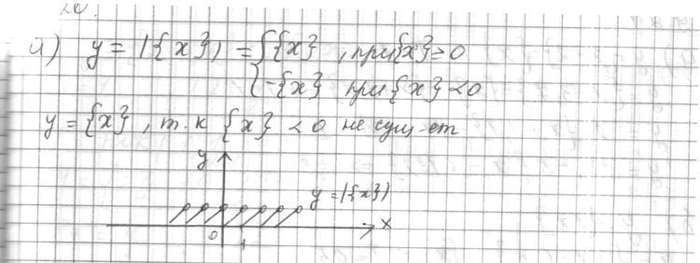 20.
а) y = |{x}| = { {x} , при {x} ≥ 0
{ -{x} при {x} < 0
y = {x} , т.к {x} < 0 не сущ-ет
y
y = |{x}|
x
0 1